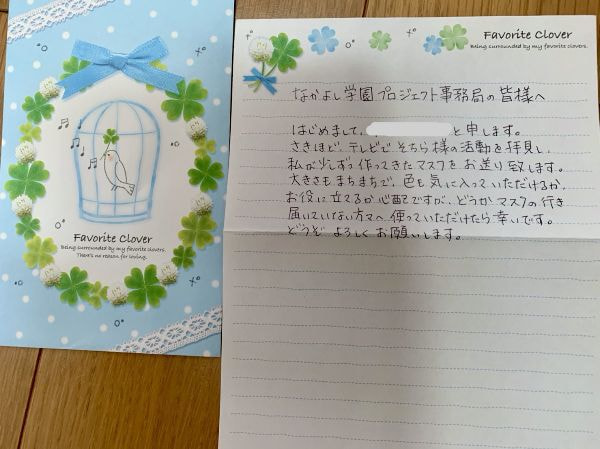 Favorite Clover
Being surrounded by my favorite clovers.
There's no reason for loving.
Favorite Clover
Being surrounded by my favorite clovers.
なかよし学園プロジェクト事務局の皆様へ
はじめまして、 と申します。
さきほど、テレビでそちら様の活動を拝見し、
私が少しずつ作ってきたマスクをお送り致します。
大きさもまちまちで、色も気に入っていただけるか、
お役に立てるか心配ですが、どうかマスクの行き
届いていない方々へ使っていただけたら幸いです。
どうぞよろしくお願いします。